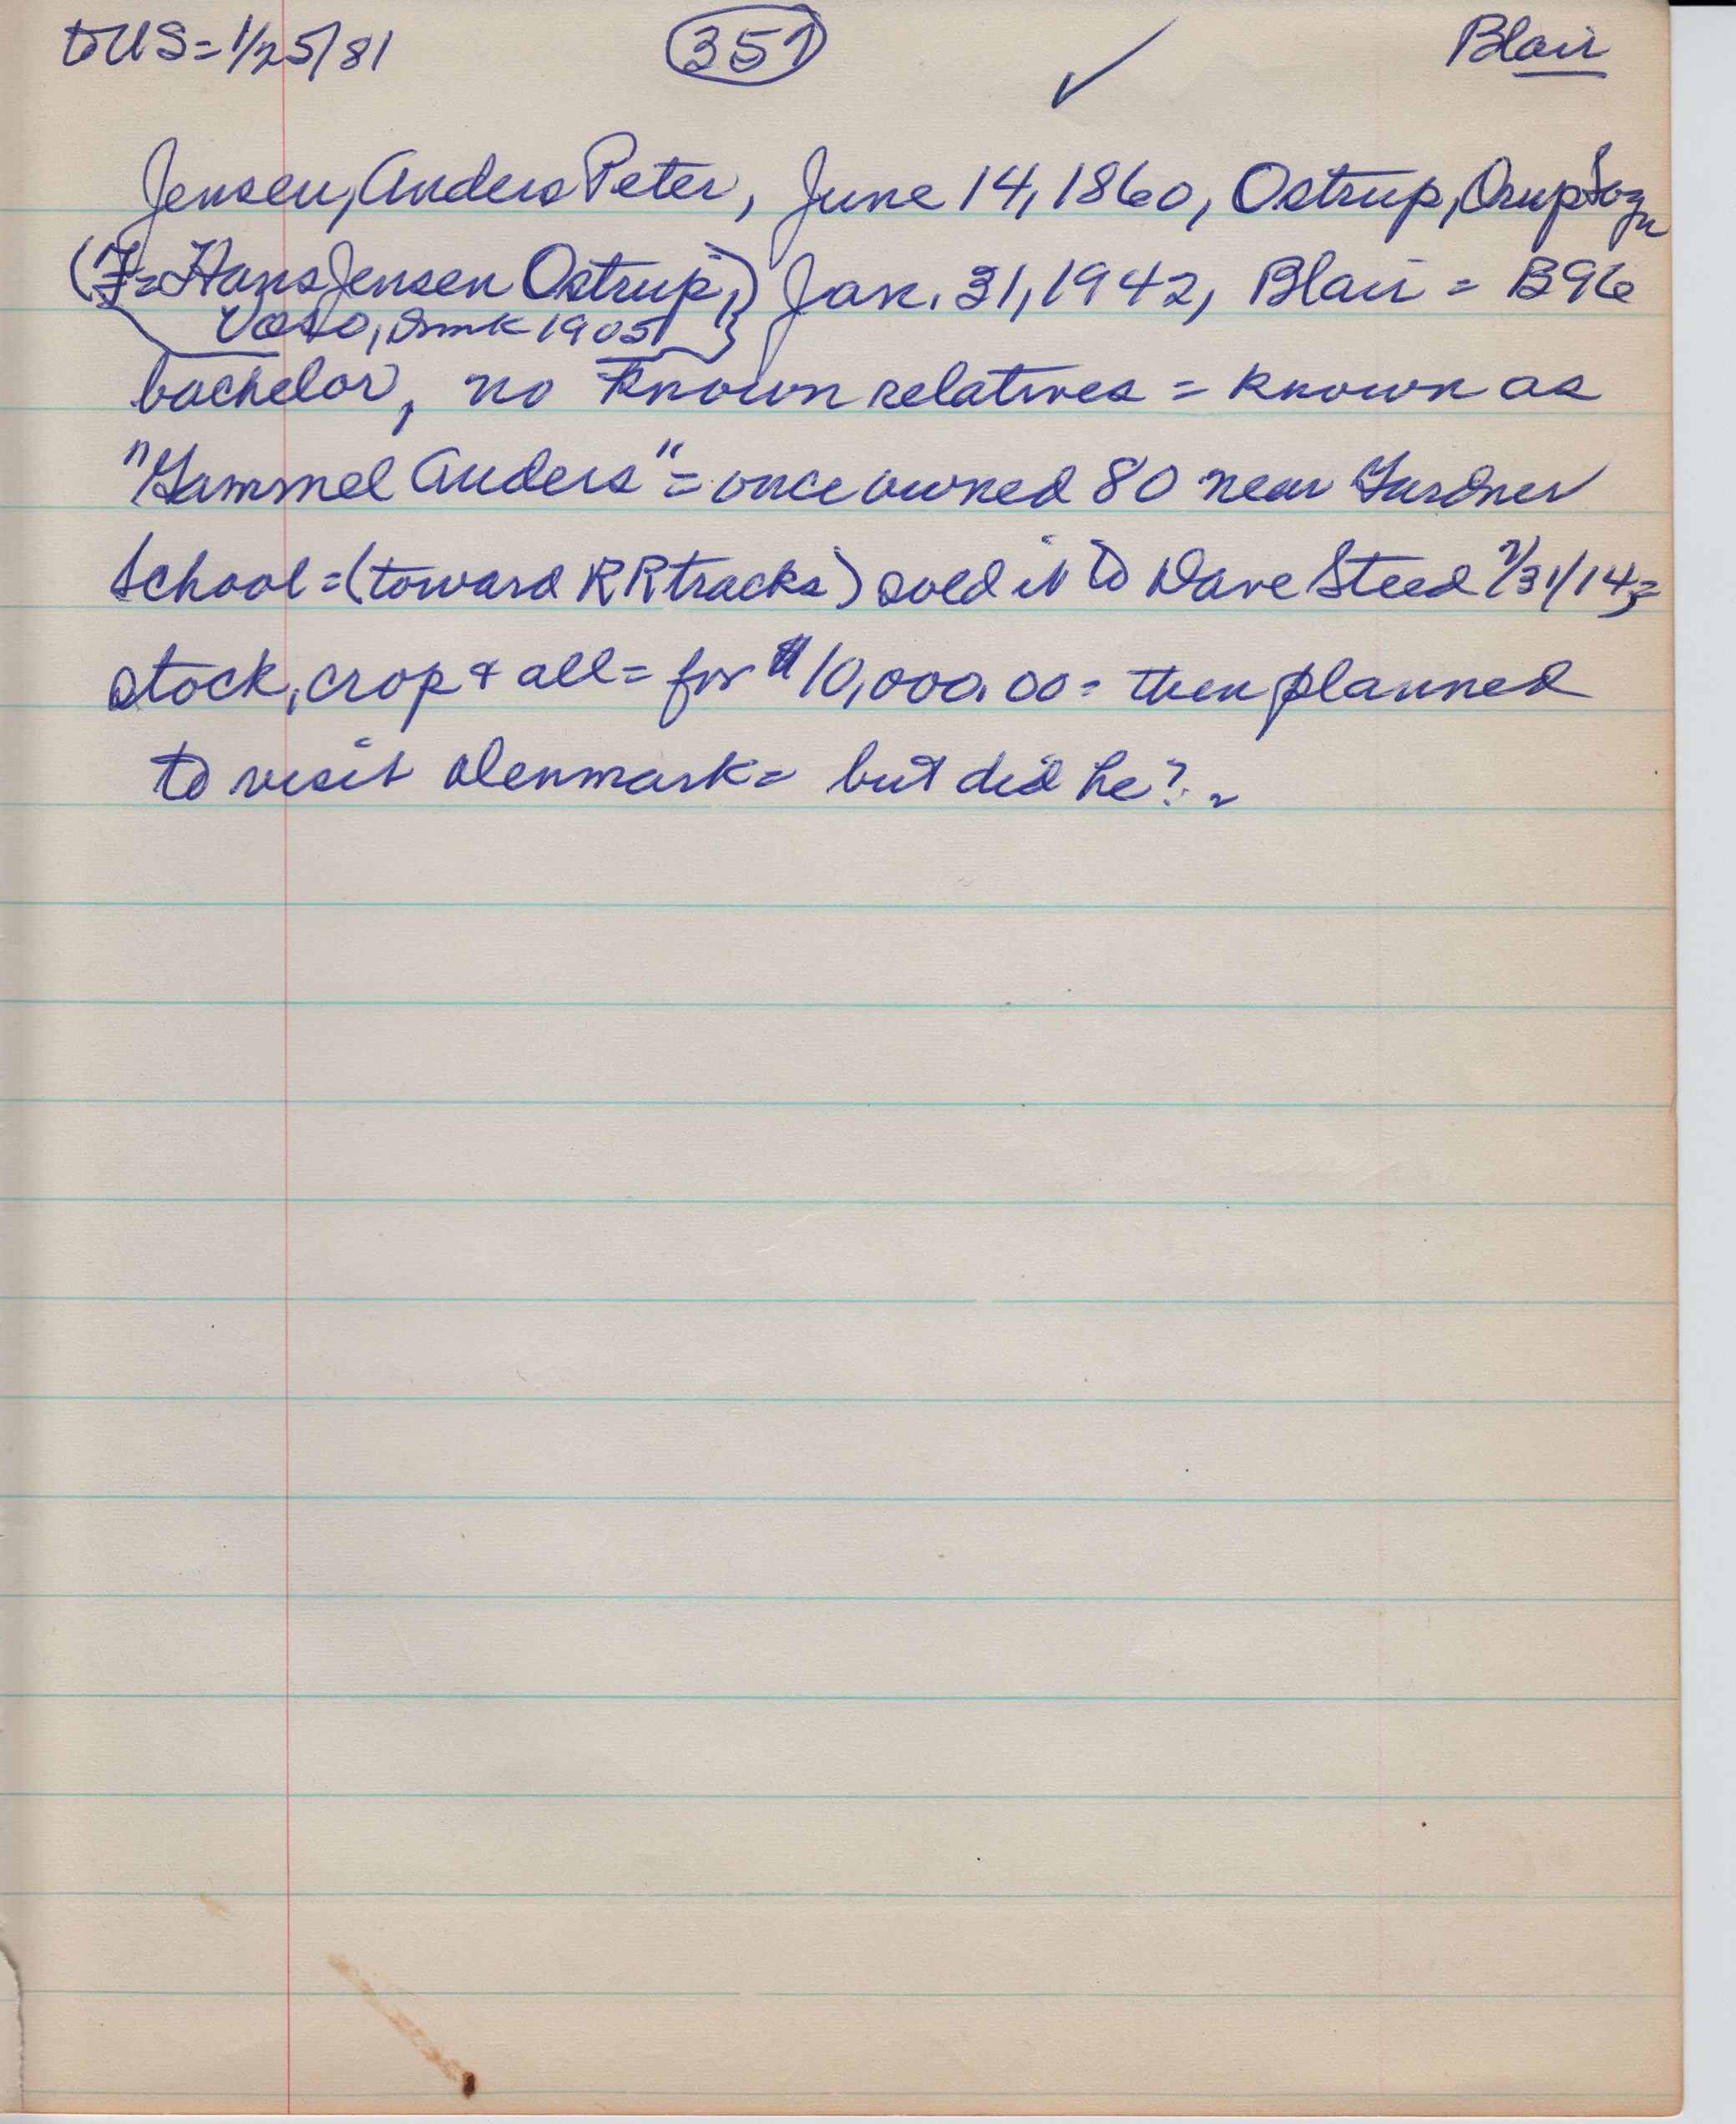 to US = 1/25/81 351 ✓ Blair
Jensen, Anders Peter, June 14, 1860, Ostrup, Orup Sogn
(F= Hans Jensen Ostrup,) Jan. 31, 1942, Blair = B96
Vaso, Dmk 1905
bachelor, no known relatives = known as
"Gammel Anders" = once owned 80 near Gardner
School = (toward RR tracks) sold it to Dave Steed 7/31/14 =
stock, crop & all = for $10,000.00 = then planned
to visit Denmark = but did he?